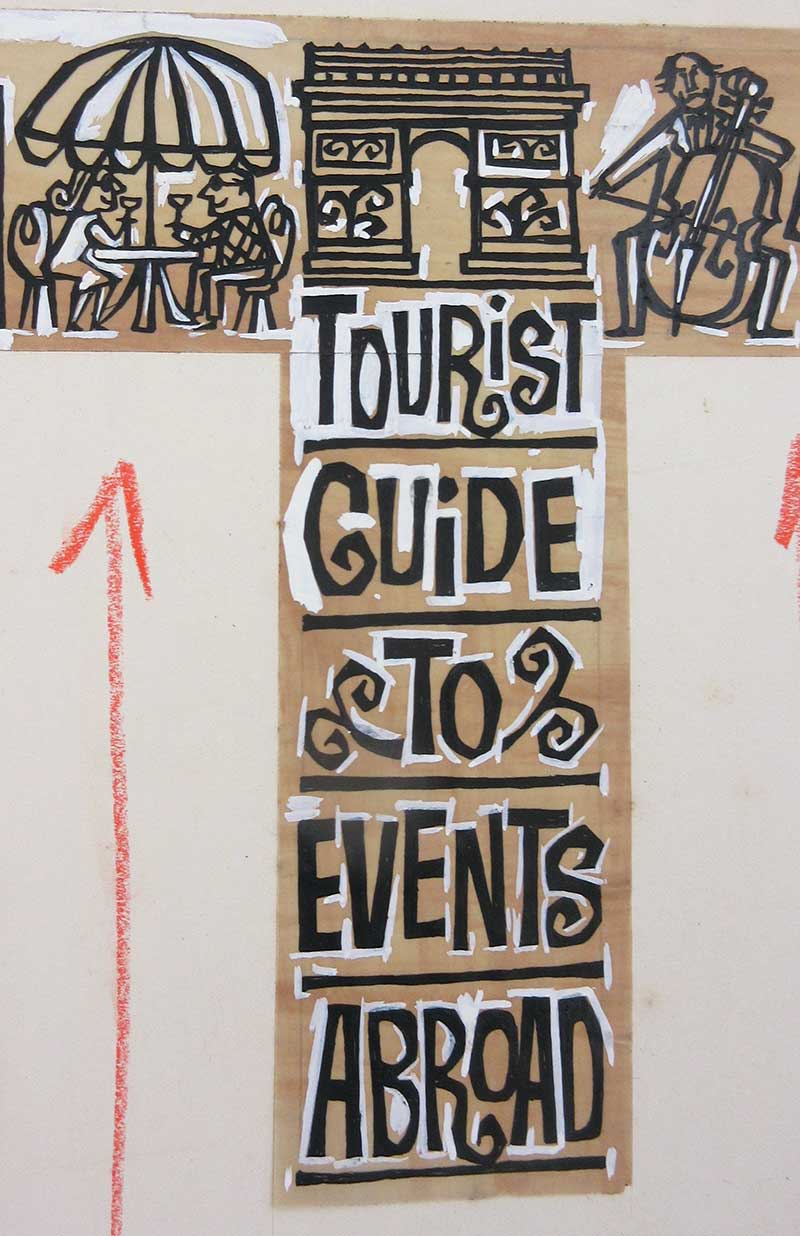 TOURiST
GUiDE
TO
EVENTS
ABROAD